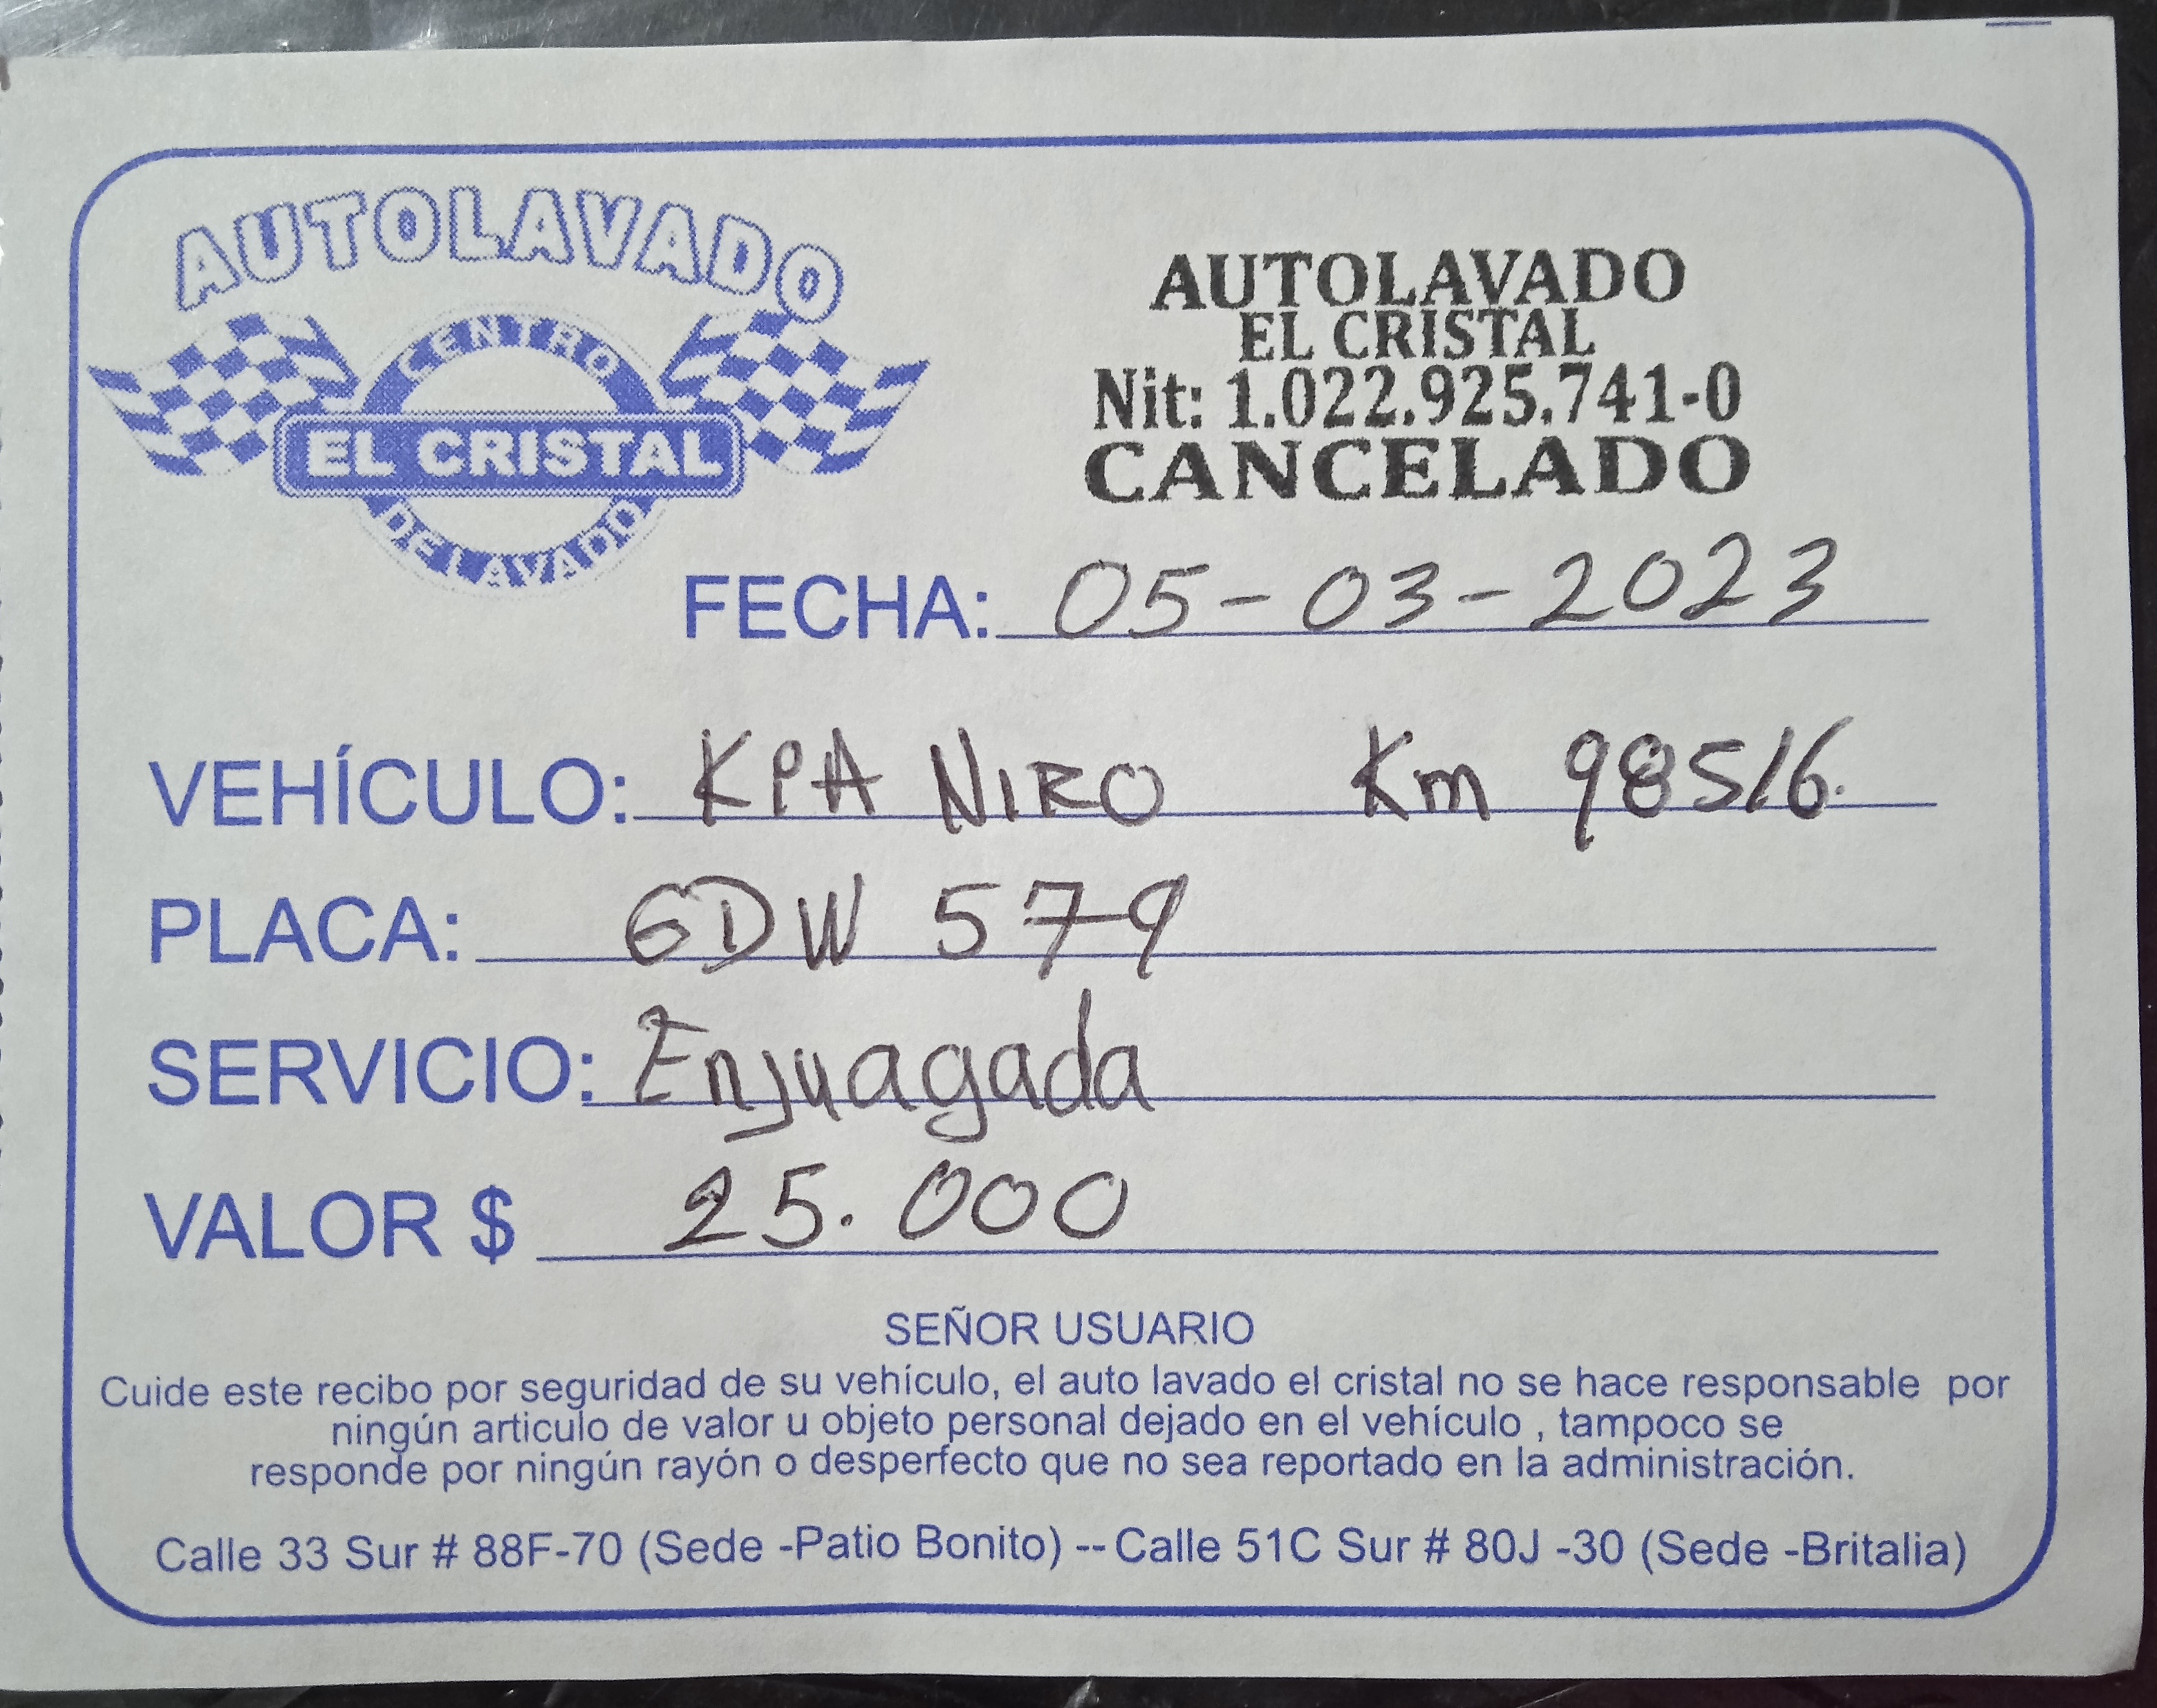 AUTOLAVADO
CENTRO
EL CRISTAL
DE LAVADO
AUTOLAVADO
EL CRISTAL
Nit: 1.022.925.741-0
CANCELADO
FECHA: 05-03-2023
VEHÍCULO: KPA NIRO Km 98516.
PLACA: GDW 579
SERVICIO: Enjuagada
VALOR $ 25.000
SEÑOR USUARIO
Cuide este recibo por seguridad de su vehículo, el auto lavado el cristal no se hace responsable por
ningún articulo de valor u objeto personal dejado en el vehículo , tampoco se
responde por ningún rayón o desperfecto que no sea reportado en la administración.
Calle 33 Sur # 88F-70 (Sede -Patio Bonito) -- Calle 51C Sur # 80J -30 (Sede -Britalia)